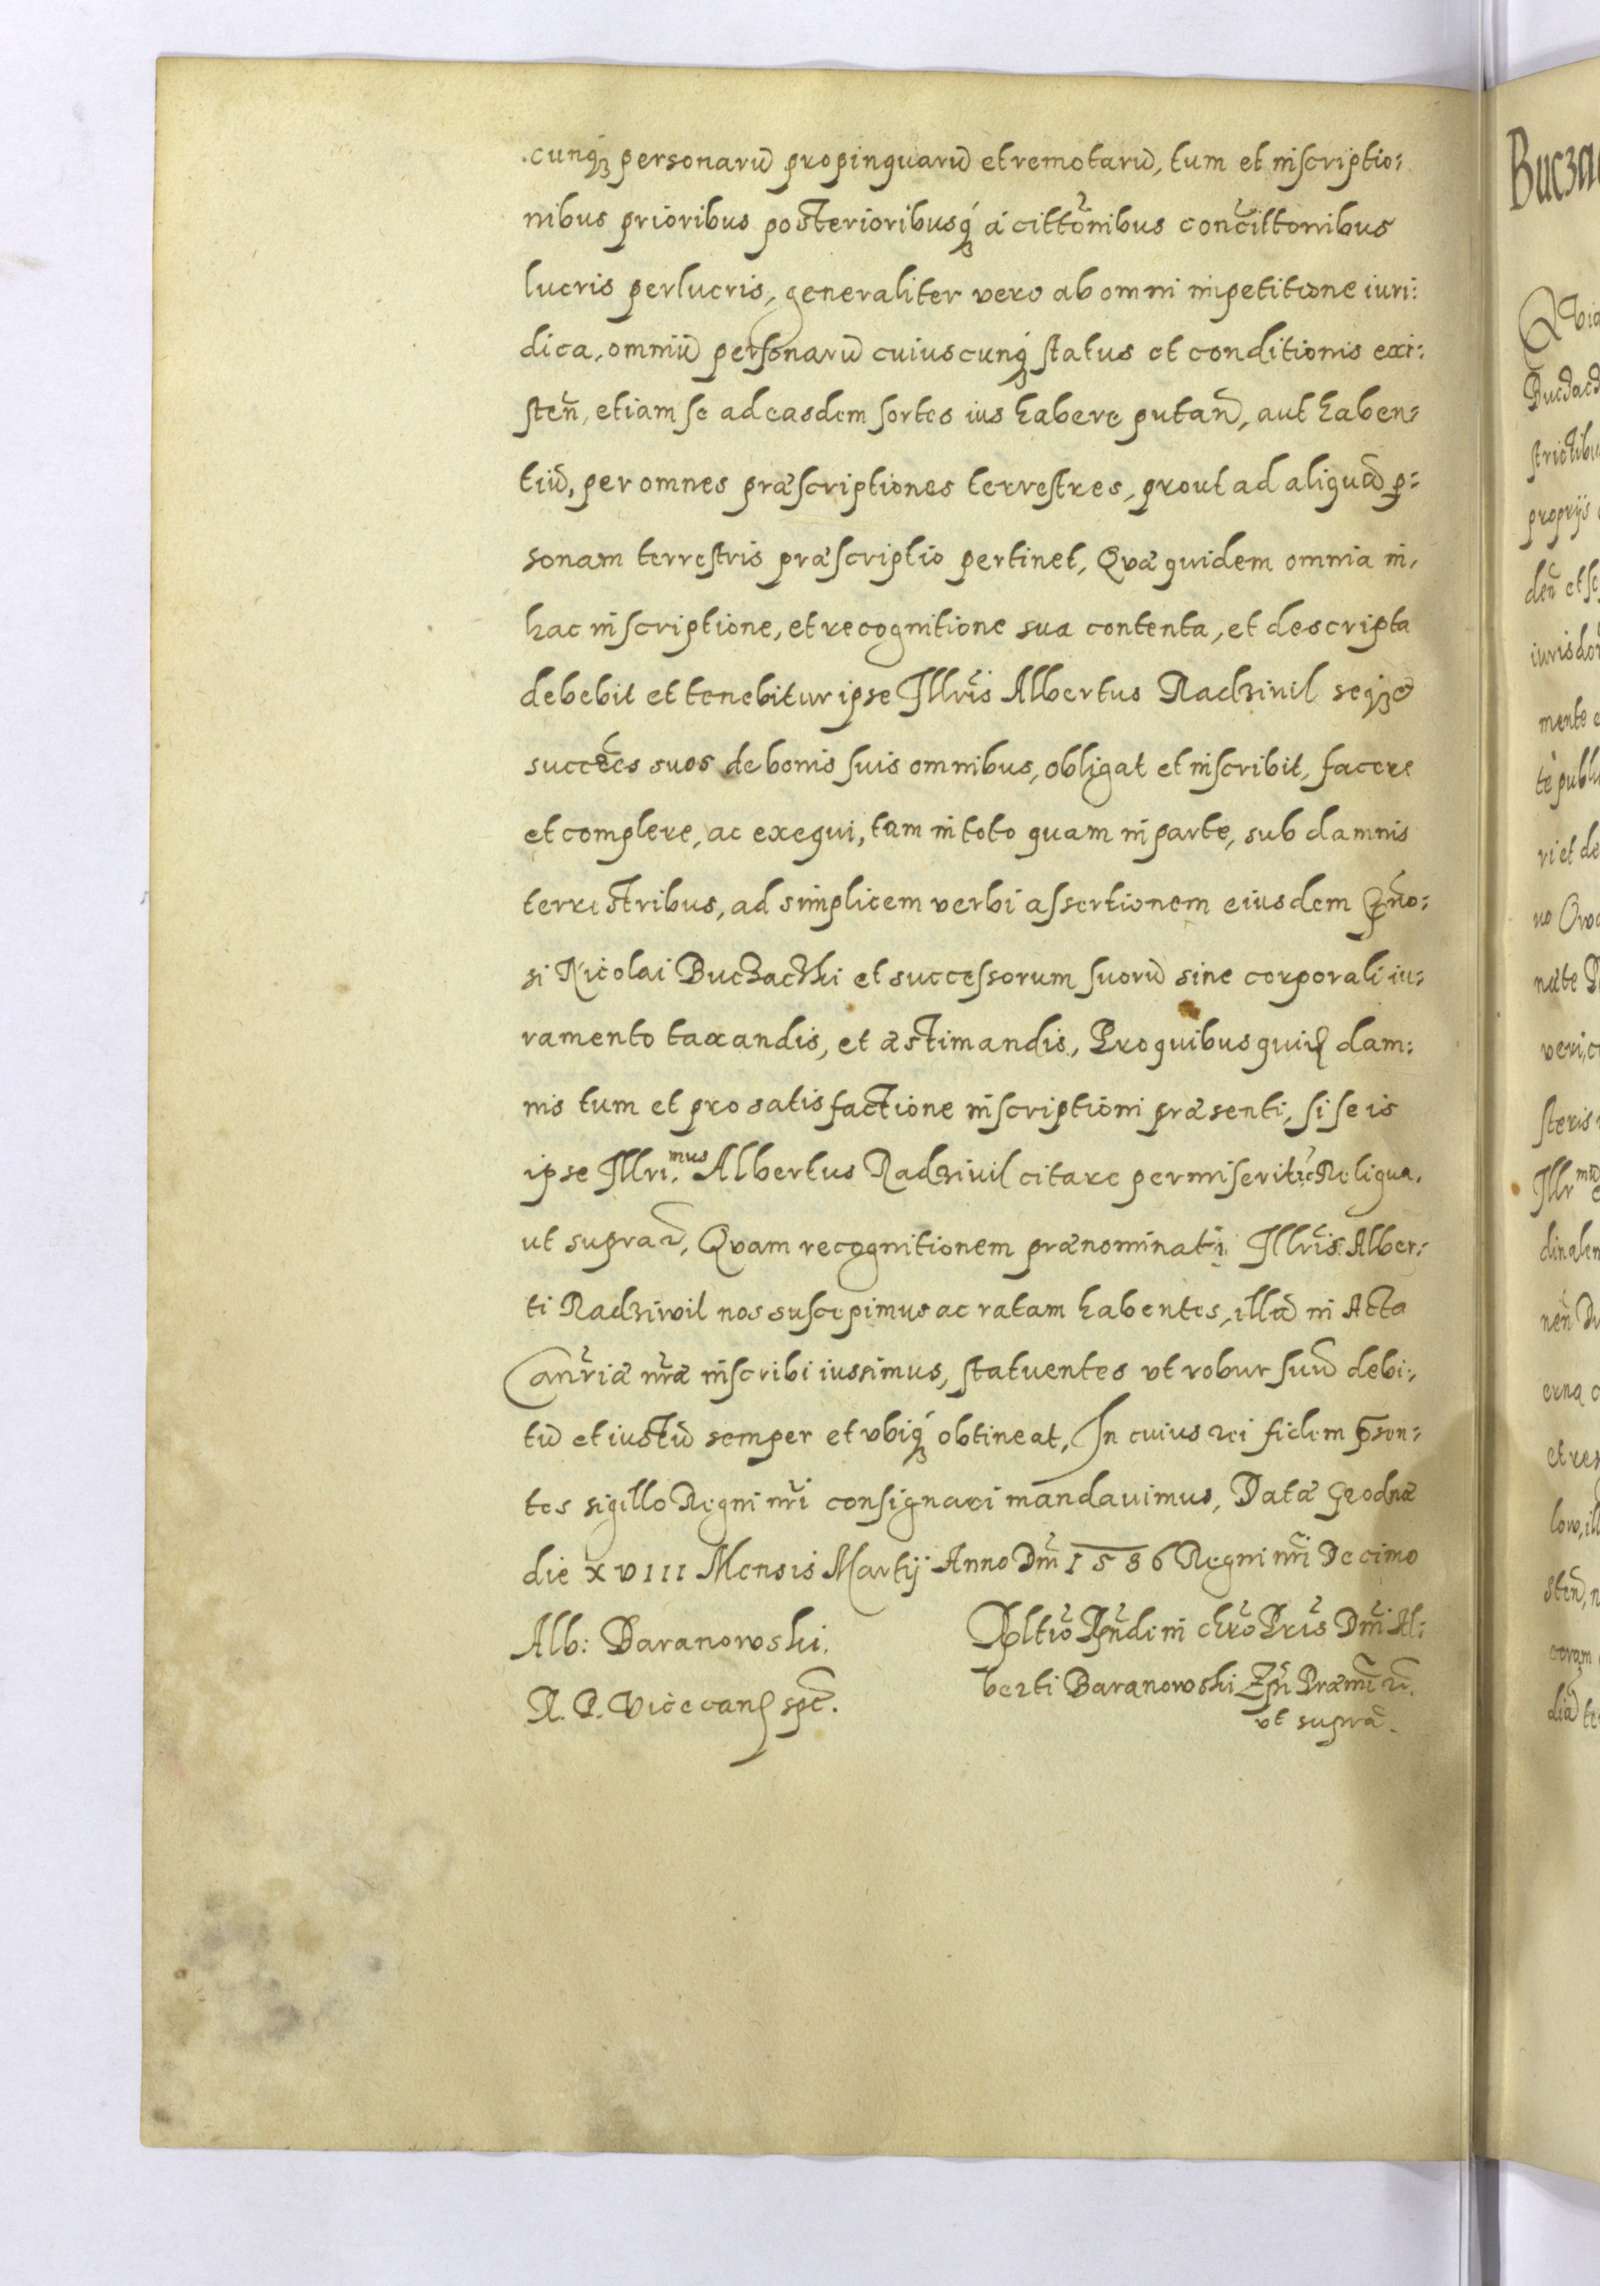 cunq₃ personarū propinquarū et remotarū, tum et inscriptio:
nibus prioribus posterioribusq₃ á cittõnibus conc̃ittonibus
lucris perlucris, generaliter vero ab omni inpetitione iuri:
dica, omniū personarū cuiuscunq₃ status et conditionis exi:
steñ, etiam se ad easdem sortes ius habere putañ, aut haben:
tiū, per omnes præscriptiones terrestres, prout ad aliquā p̱:
sonam terrestris præscriptio pertinet, Qvæ quidem omnia in,
hac inscriptione, et recognitione sua contenta, et descripta
debebit et tenebitur ipse Illrĩs Albertus Radzivil seq₃ &
succẽes suos de bonis suis omnibus, obligat et inscribit, facere
et complere, ac exequi, tam in toto quam in parte, sub damnis
terrestribus, ad simplicem verbi assertionem eiusdem Gño:
si Nicolai Buczaczki et successorum suorū sine corporali iu:
ramento taxandis, et æstimandis, Pro quibus quiđ dam:
nis tum et pro satisfactione inscriptioni præsenti, si se is
ipse Illri.mus Albertus Radzivil citare permiserit, &c Reliqua,
ut supra, Qvam recognitionem prænominati Illrĩs Alber:
ti Radziwil nos suscepimus ac ratam habentes, illā in Acta
Canr̃iæ nr̃æ inscribi iussimus, statuentes vt robur suū debi:,
tū et iustū semper et vbiq₃ obtineat, In cuius rei fidem p̄sen:
tes sigillo Regni nr̃i consignari mandavimus, Datæ Grodnæ
die XVIII Mensis Martij Anno Dñi 1586 Regni nr̃i Decimo
Alb: Baranowski.
R. P. Vicecanc̃ spt.
Rltio Rñdi in chr̃o Pris Dñi Al:
berti Baranowski Epĩ Præmĩ
vt supra.
Buczac